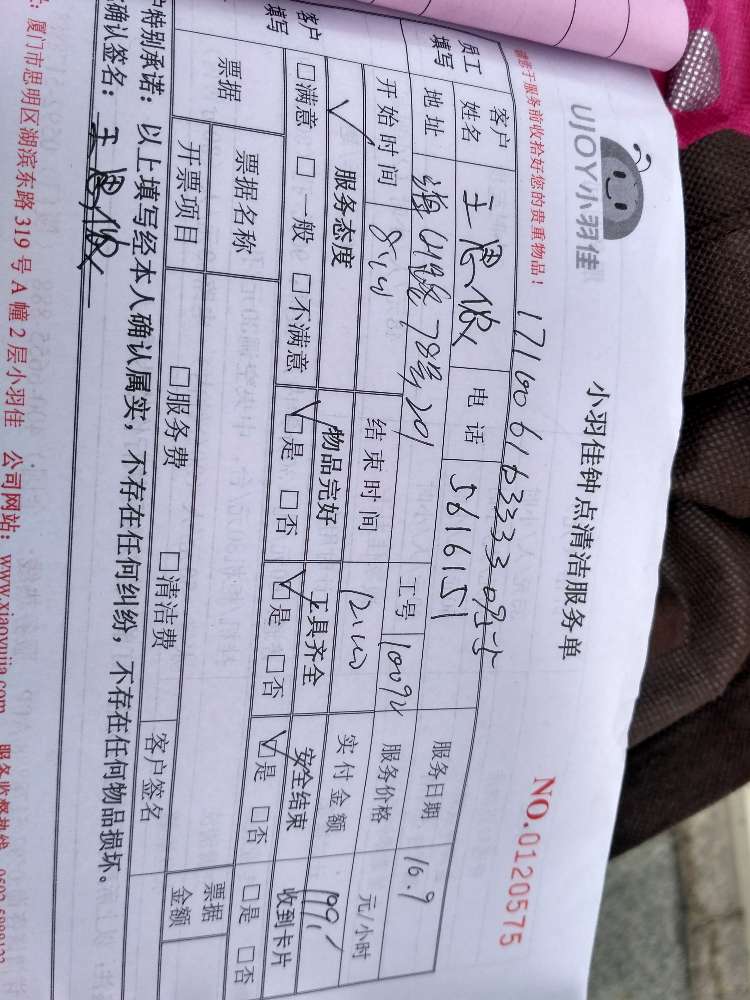 UJOY小羽佳
小羽佳钟点清洁服务单
NO.0120575
请您于服务前收拾好您的贵重物品!
员工填写
客户姓名
电话 5616151
服务日期 16.9
地址
工号
服务价格 元/小时
开始时间 8:00
结束时间 12:00
实付金额
客户填写
服务态度 物品完好 工具齐全 安全结束 收到卡片
□满意 □一般 □不满意 □是 □否 □是 □否 □是 □否 □是 □否
票据
票据名称
票据金额
开票项目 □服务费 □清洁费 客户签名
户特别承诺:以上填写经本人确认属实,不存在任何纠纷,不存在任何物品损坏。
确认签名:
厦门市思明区湖滨东路319号A幢2层小羽佳 公司网站:www.xiaoyujia.com